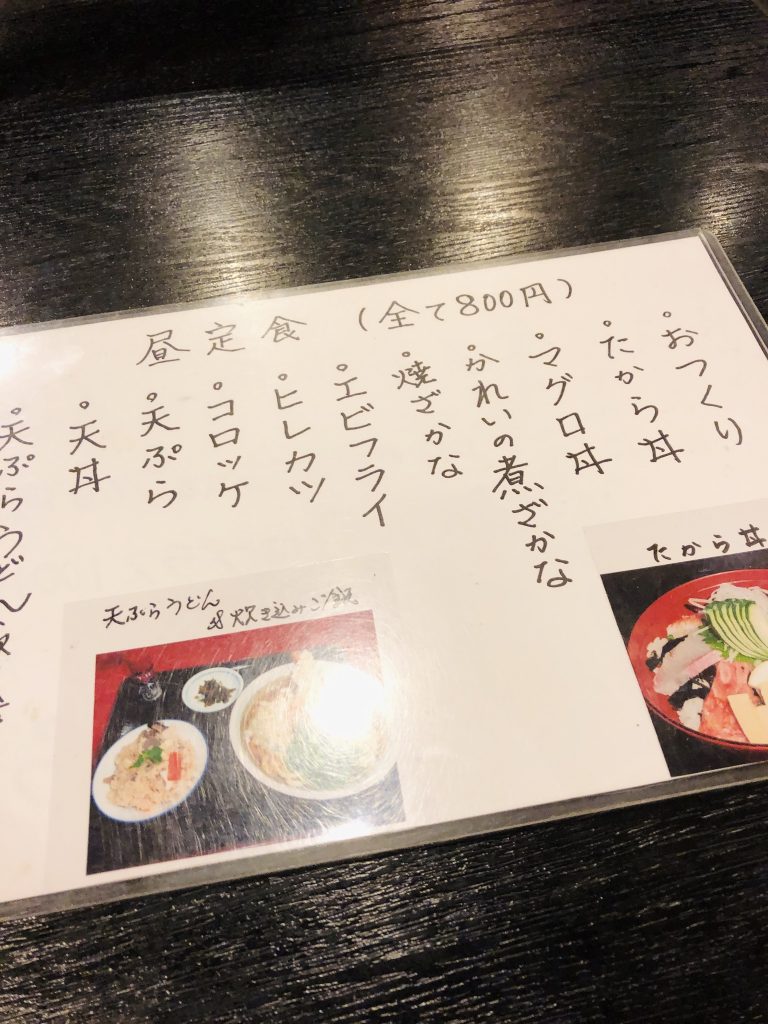 昼定食 (全て800円)
°おつくり
°たから丼
°マグロ丼
°かれいの煮ざかな
°焼ざかな
°エビフライ
°ヒレカツ
°コロッケ
°天ぷら
°天丼
°天ぷらうどん
たから丼
天ぷらうどん
&炊き込みご飯